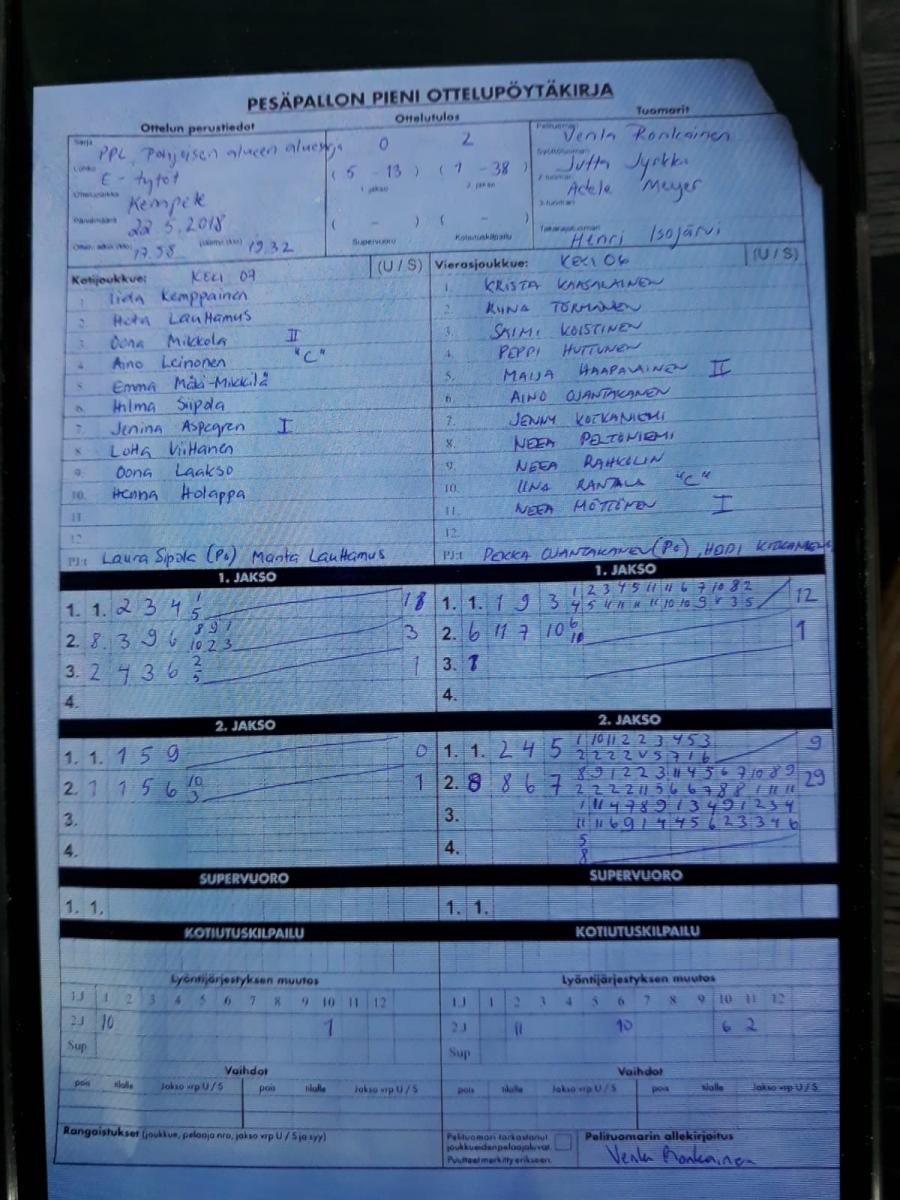 PESÄPALLON PIENI OTTELUPÖYTÄKIRJA
Ottelun perustiedot
Ottelutulos
Tuomarit
Sarja PPL, Pohjoisen alueen
0 2
Venla Ronkainen
Lohko E-tytöt
(5 - 13) (1 - 38)
1. jakso 2. jakso
Jutta Jyrkkä
Kempele
Adele Meyer
Päivämäärä 22.5.2018
( - ) ( - )
17.58 19.32
Supervuoro Kotiutuskilpailu
Henri Isojärvi
Kotijoukkue: KELI 07 (U / S)
Vierasjoukkue: KELI 06 (U / S)
1. Iida Kemppainen
2. Lauttamus
3. Oona Mikkola II
4. Aino Leinonen "C"
5. Emma Mäki-Mikkilä
6. Hilma Siipola
7. Jenina Aspegren I
8. Lotta Viittanen
9. Oona Laakso
10. Henna Holappa
11.
12.
PJ:t Laura Sipola (Po) Manta Lauttamus
1. KRISTA
2. RIINA TÖRMÄNEN
3. SAIMI KOISTINEN
4. PEPPI HUTTUNEN
5. MAIJA HAAPALAINEN II
6. AINO OJANTAKANEN
7. JENNY KOTKANIEMI
8. NEEA PELTONIEMI
9. NEEA RAHKOLIN
10. IINA RANTALA "C"
11. NEEA MÖTTÖNEN I
12.
PJ:t PEKKA OJANTAKANEN (Po), HEIDI
1. JAKSO
1. JAKSO
1. 1. 2 3 4 1 5
2. 8 3 9 6 8 9 1 10 2 3 3
3. 2 4 3 6 2 5 1
4.
1. 1. 1 9 3 1 2 3 4 5 11 11 6 7 10 8 2 12
2. 6 11 7 10 6 10 1
3. 1
4.
2. JAKSO
2. JAKSO
1. 1. 1 5 9 0
2. 1 1 5 6 10 3 1
3.
4.
1. 1. 2 4 5 1 10 11 2 2 3 4 5 3 9
2 2 2 2 5 7 1 6
2. 8 8 6 7 8 9 1 2 2 3 11 4 5 6 7 10 8 9 29
2 2 2 2 11 5 6 6 7 8 8 1 11 11
3. 1 11 4 7 8 9 1 3 4 9 1 2 3 4
11 11 6 9 1 4 4 5 6 2 3 3 4 6
4. 5
8
SUPERVUORO
SUPERVUORO
1. 1.
1. 1.
KOTIUTUSKILPAILU
KOTIUTUSKILPAILU
Lyöntijärjestyksen muutos
Lyöntijärjestyksen muutos
1.J 1 2 3 4 5 6 7 8 9 10 11 12
2.J 10 1
Sup
1.J 1 2 3 4 5 6 7 8 9 10 11 12
2.J 11 10 6 2
Sup
Vaihdot
Vaihdot
pois tilalle Jakso vrp U / S pois tilalle Jakso vrp U / S
pois tilalle Jakso vrp U / S pois tilalle Jakso vrp U / S
Rangaistukset (joukkue, pelaaja nro, jakso vrp U / S ja syy)
Pelituomari tarkastanut
joukkueiden pelaajaluvat.
Puutteet merkitty erikseen.
Pelituomarin allekirjoitus
Venla Ronkainen